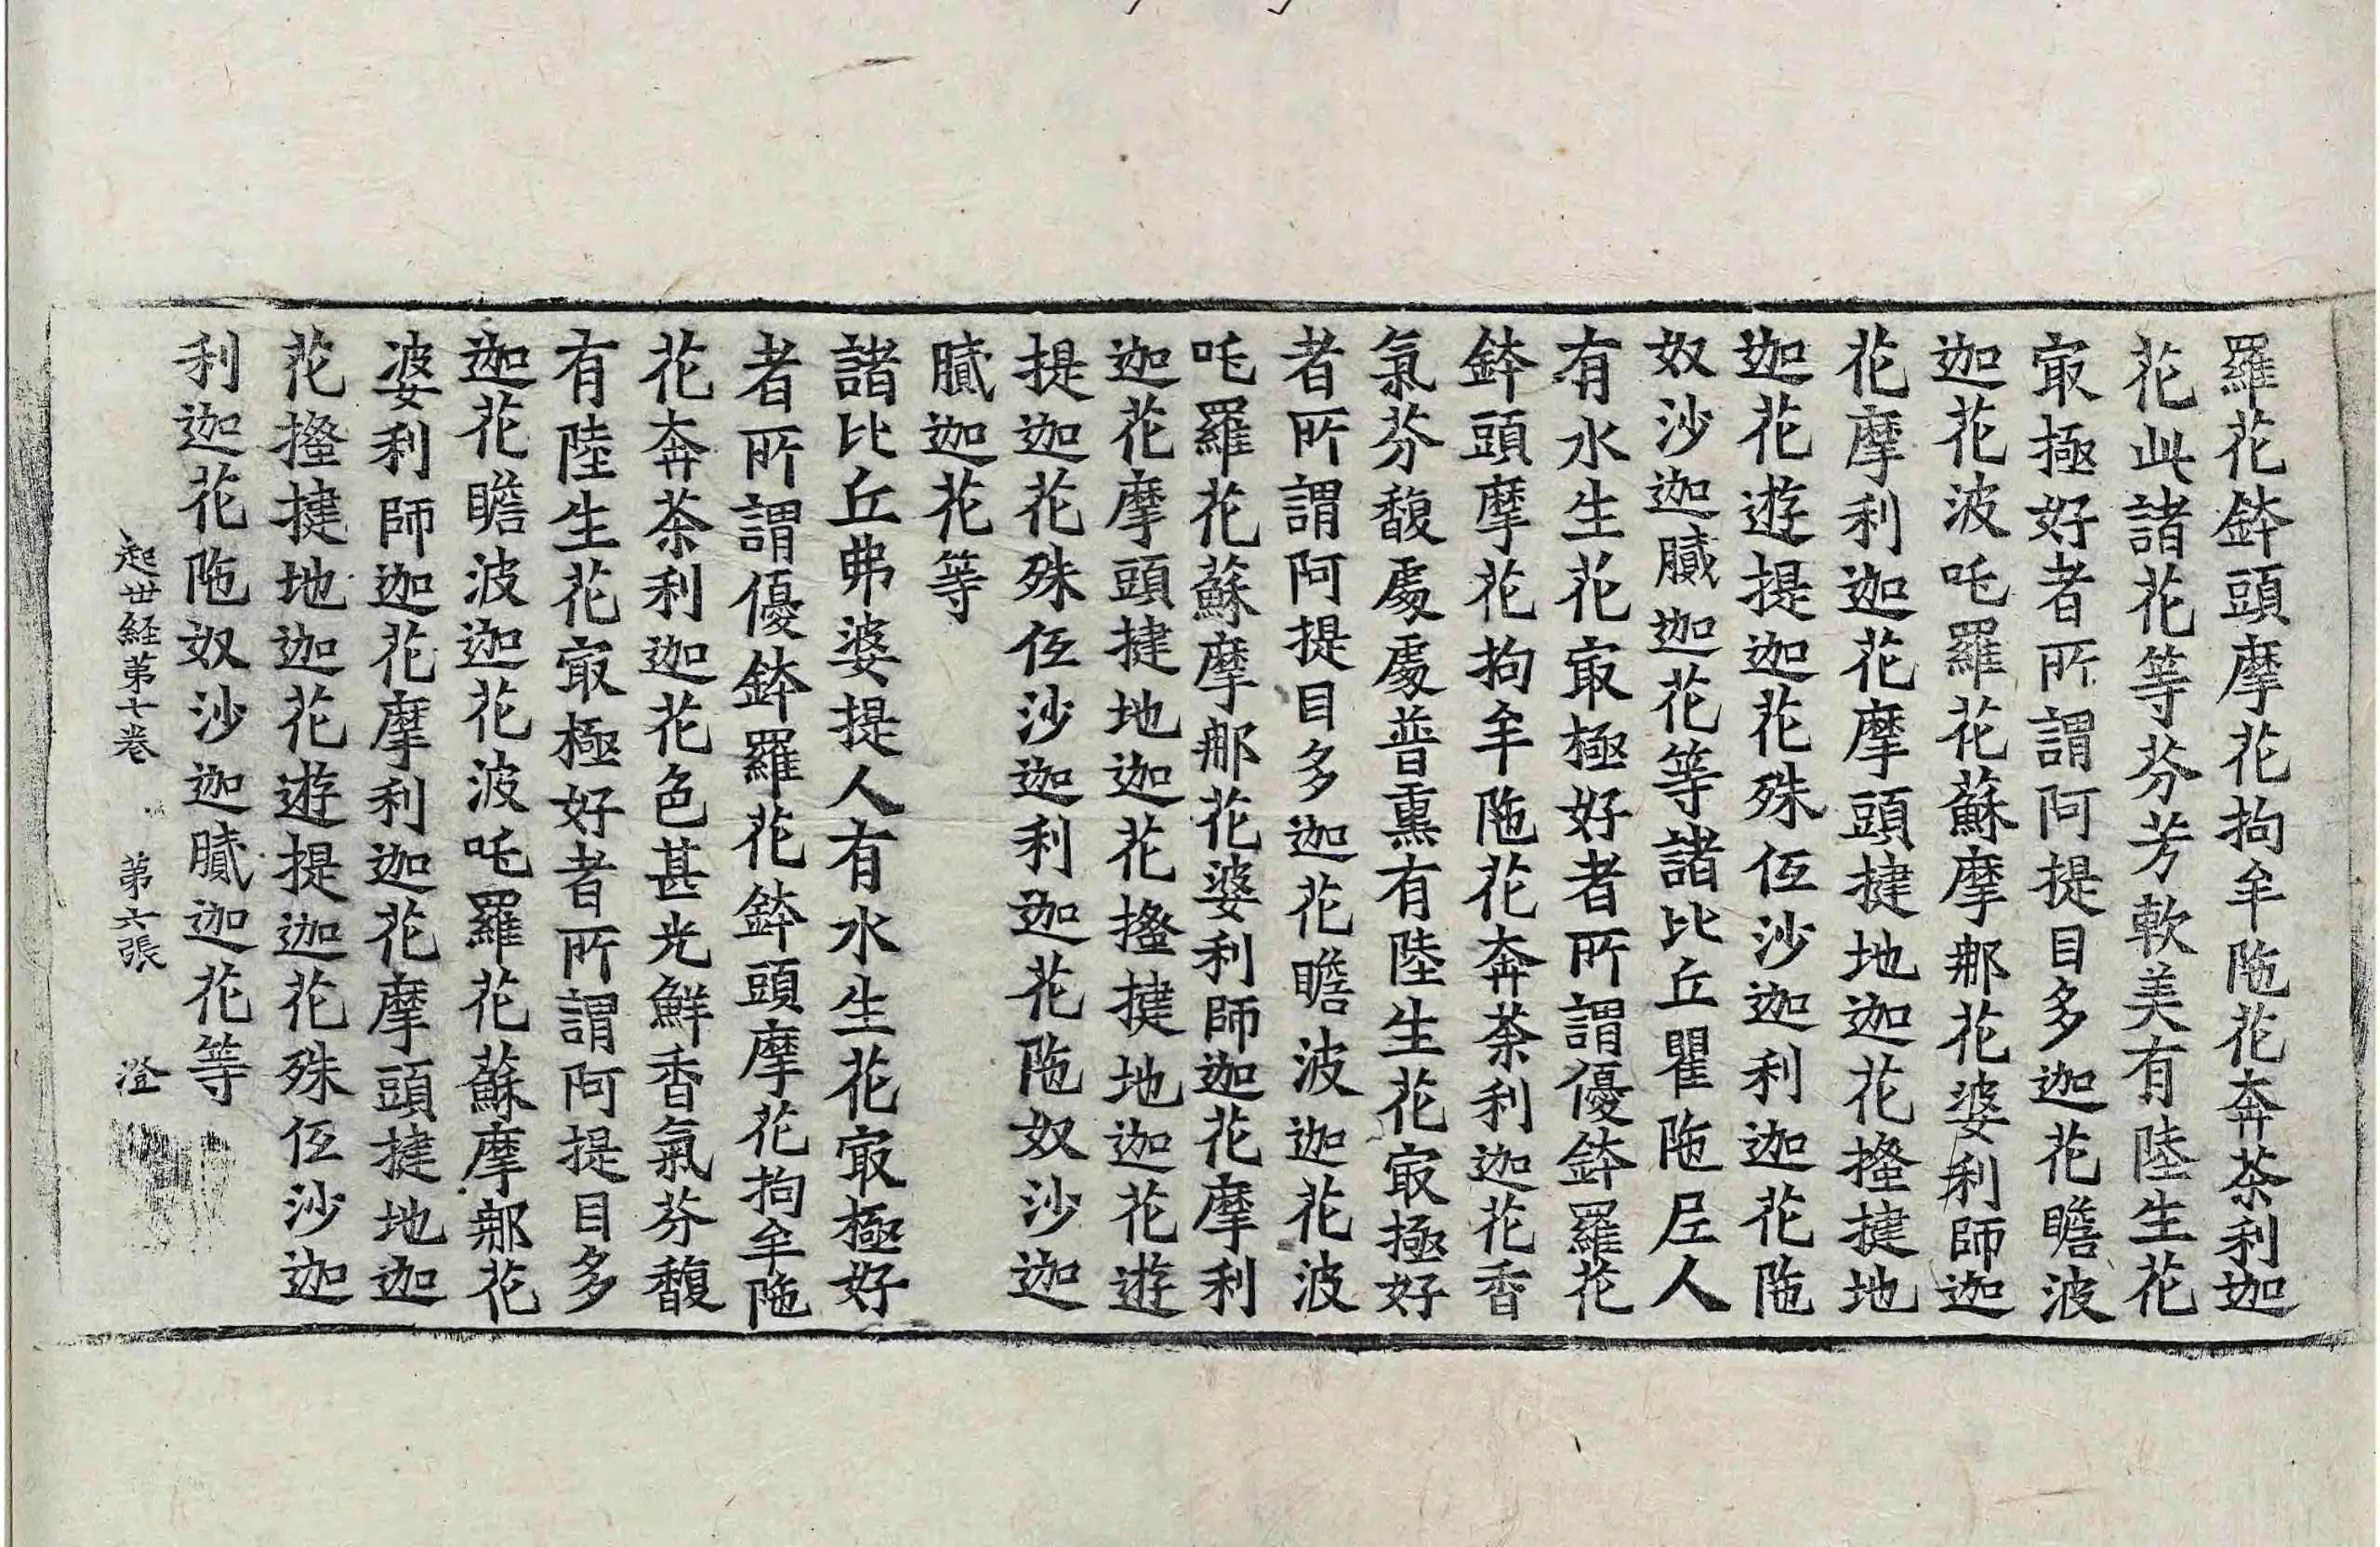 羅花鉢頭摩花拘牟陁花奔荼利迦
花此諸花等芬芳軟美有陸生花
㝡極好者所謂阿提目多迦花瞻波
迦花波吒羅花蘇摩那花婆利師迦
花摩利迦花摩頭揵地迦花搔揵地
迦花遊提迦花殊低沙迦利迦花陁
奴沙迦膩迦花等諸比丘瞿陁尼人
有水生花㝡極好者所謂優鉢羅花
鉢頭摩花拘牟陁花奔荼利迦花香
氣芬馥處處普熏有陸生花㝡極好
者所謂阿提目多迦花瞻波迦花波
吒羅花蘇摩那花婆利師迦花摩利
迦花摩頭揵地迦花搔揵地迦花遊
提迦花殊低沙迦利迦花陁奴沙迦
膩迦花等
諸比丘弗婆提人有水生花㝡極好
者所謂優鉢羅花鉢頭摩花拘牟陁
花奔荼利迦花色甚光鮮香氣芬馥
有陸生花㝡極好者所謂阿提目多
迦花瞻波迦花波吒羅花蘇摩那花
婆利師迦花摩利迦花摩頭揵地迦
花搔揵地迦花遊提迦花殊低沙迦
利迦花陁奴沙迦膩迦花等
起世経第七卷 第六張 澄